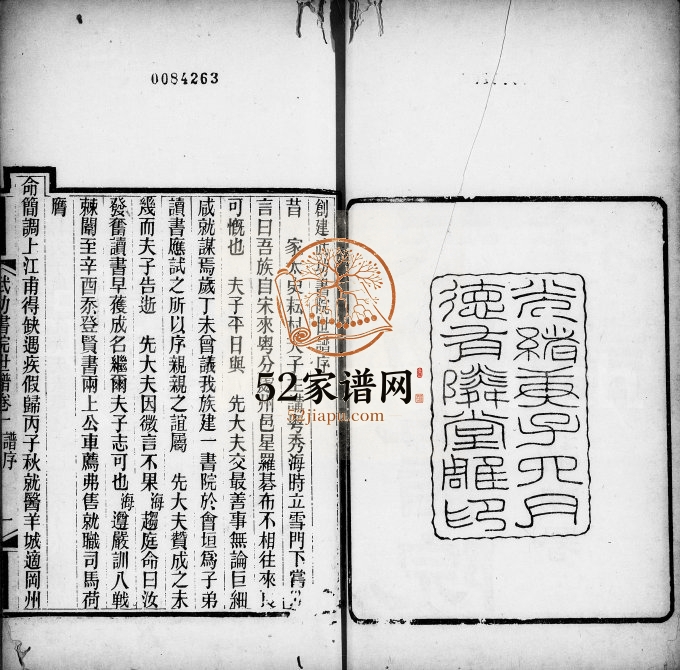 0084263
光緒庚子四月
德有隣堂雕印
創建武功書院世譜序
昔 家太史耘 夫子 講粵秀海時立雪門下嘗
言曰吾族自宋來粵分 州邑星羅碁布不相往來良
可慨也 夫子平日與 先大夫交最善事無論巨細
咸就謀焉歲丁未曾議我族建一書院於會垣爲子弟
讀書應試之所以序親親之誼屬 先大夫贊成之未
幾而夫子告逝 先大夫因微言不果海趨庭命曰汝
發奮讀書早獲成名繼爾夫子志可也海遵嚴訓八戰
棘闈至辛酉忝登賢書兩上公車薦弗售就職司馬荷
膺
命簡調上江甫得缺遇疾假歸丙子秋就醫羊城適岡州
武功書院世譜卷一 譜序 一
52家谱网
52jiapu.com